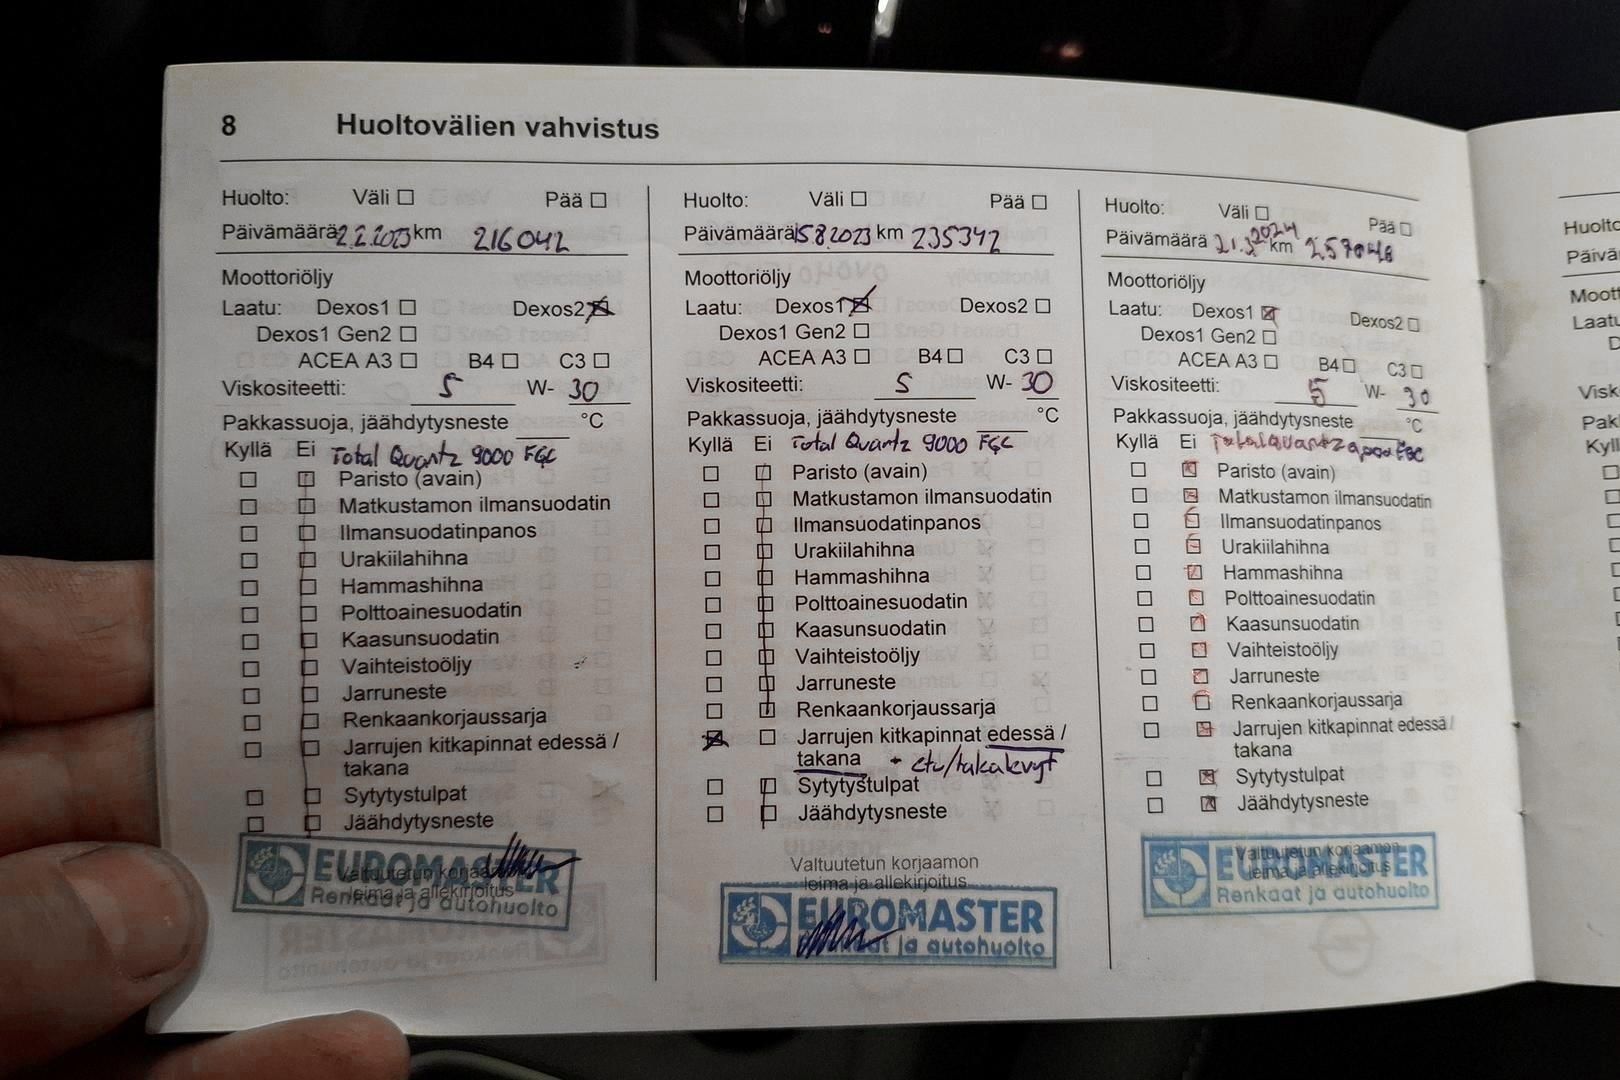 8 Huoltovälien vahvistus
Huolto: Väli Pää
Päivämäärä 2.2.2023 km 216042
Moottoriöljy
Laatu: Dexos1 Dexos2
Dexos1 Gen2
ACEA A3 B4 C3
Viskositeetti: 5 W- 30
Pakkassuoja, jäähdytysneste °C
Kyllä Ei Total Quartz 9000 FGC
Paristo (avain)
Matkustamon ilmansuodatin
Ilmansuodatinpanos
Urakiilahihna
Hammashihna
Polttoainesuodatin
Kaasunsuodatin
Vaihteistoöljy
Jarruneste
Renkaankorjaussarja
Jarrujen kitkapinnat edessä /
takana
Sytytystulpat
Jäähdytysneste
Valtuutetun korjaamon
leima ja allekirjoitus
EUROMASTER
Renkaat ja autohuolto
Huolto: Väli Pää
Päivämäärä 15.8.2023 km 235342
Moottoriöljy
Laatu: Dexos1 Dexos2
Dexos1 Gen2
ACEA A3 B4 C3
Viskositeetti: 5 W- 30
Pakkassuoja, jäähdytysneste °C
Kyllä Ei Total Quartz 9000 FGC
Paristo (avain)
Matkustamon ilmansuodatin
Ilmansuodatinpanos
Urakiilahihna
Hammashihna
Polttoainesuodatin
Kaasunsuodatin
Vaihteistoöljy
Jarruneste
Renkaankorjaussarja
Jarrujen kitkapinnat edessä /
takana - etu/takalevyt
Sytytystulpat
Jäähdytysneste
Valtuutetun korjaamon
leima ja allekirjoitus
EUROMASTER
Renkaat ja autohuolto
Huolto: Väli Pää
Päivämäärä 21.3.2024 km 257048
Moottoriöljy
Laatu: Dexos1 Dexos2
Dexos1 Gen2
ACEA A3 B4 C3
Viskositeetti: 5 W- 30
Pakkassuoja, jäähdytysneste °C
Kyllä Ei Total Quartz 9000 FGC
Paristo (avain)
Matkustamon ilmansuodatin
Ilmansuodatinpanos
Urakiilahihna
Hammashihna
Polttoainesuodatin
Kaasunsuodatin
Vaihteistoöljy
Jarruneste
Renkaankorjaussarja
Jarrujen kitkapinnat edessä /
takana
Sytytystulpat
Jäähdytysneste
Valtuutetun korjaamon
leima ja allekirjoitus
EUROMASTER
Renkaat ja autohuolto